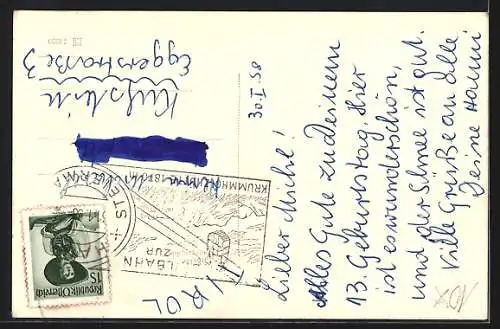 30.I.58
Lieber Michl!
Alles Gute zu Deinem
13. Geburtstag. Hier
ist es wunderschön,
und der Schnee ist gut.
Viele Grüße an alle
Deine Hanni
Kufstein
Eggerstraße 3
TIROL
STEIERM
KRUMMHO
LBAHN
ZUR
Republik Österreich
1S